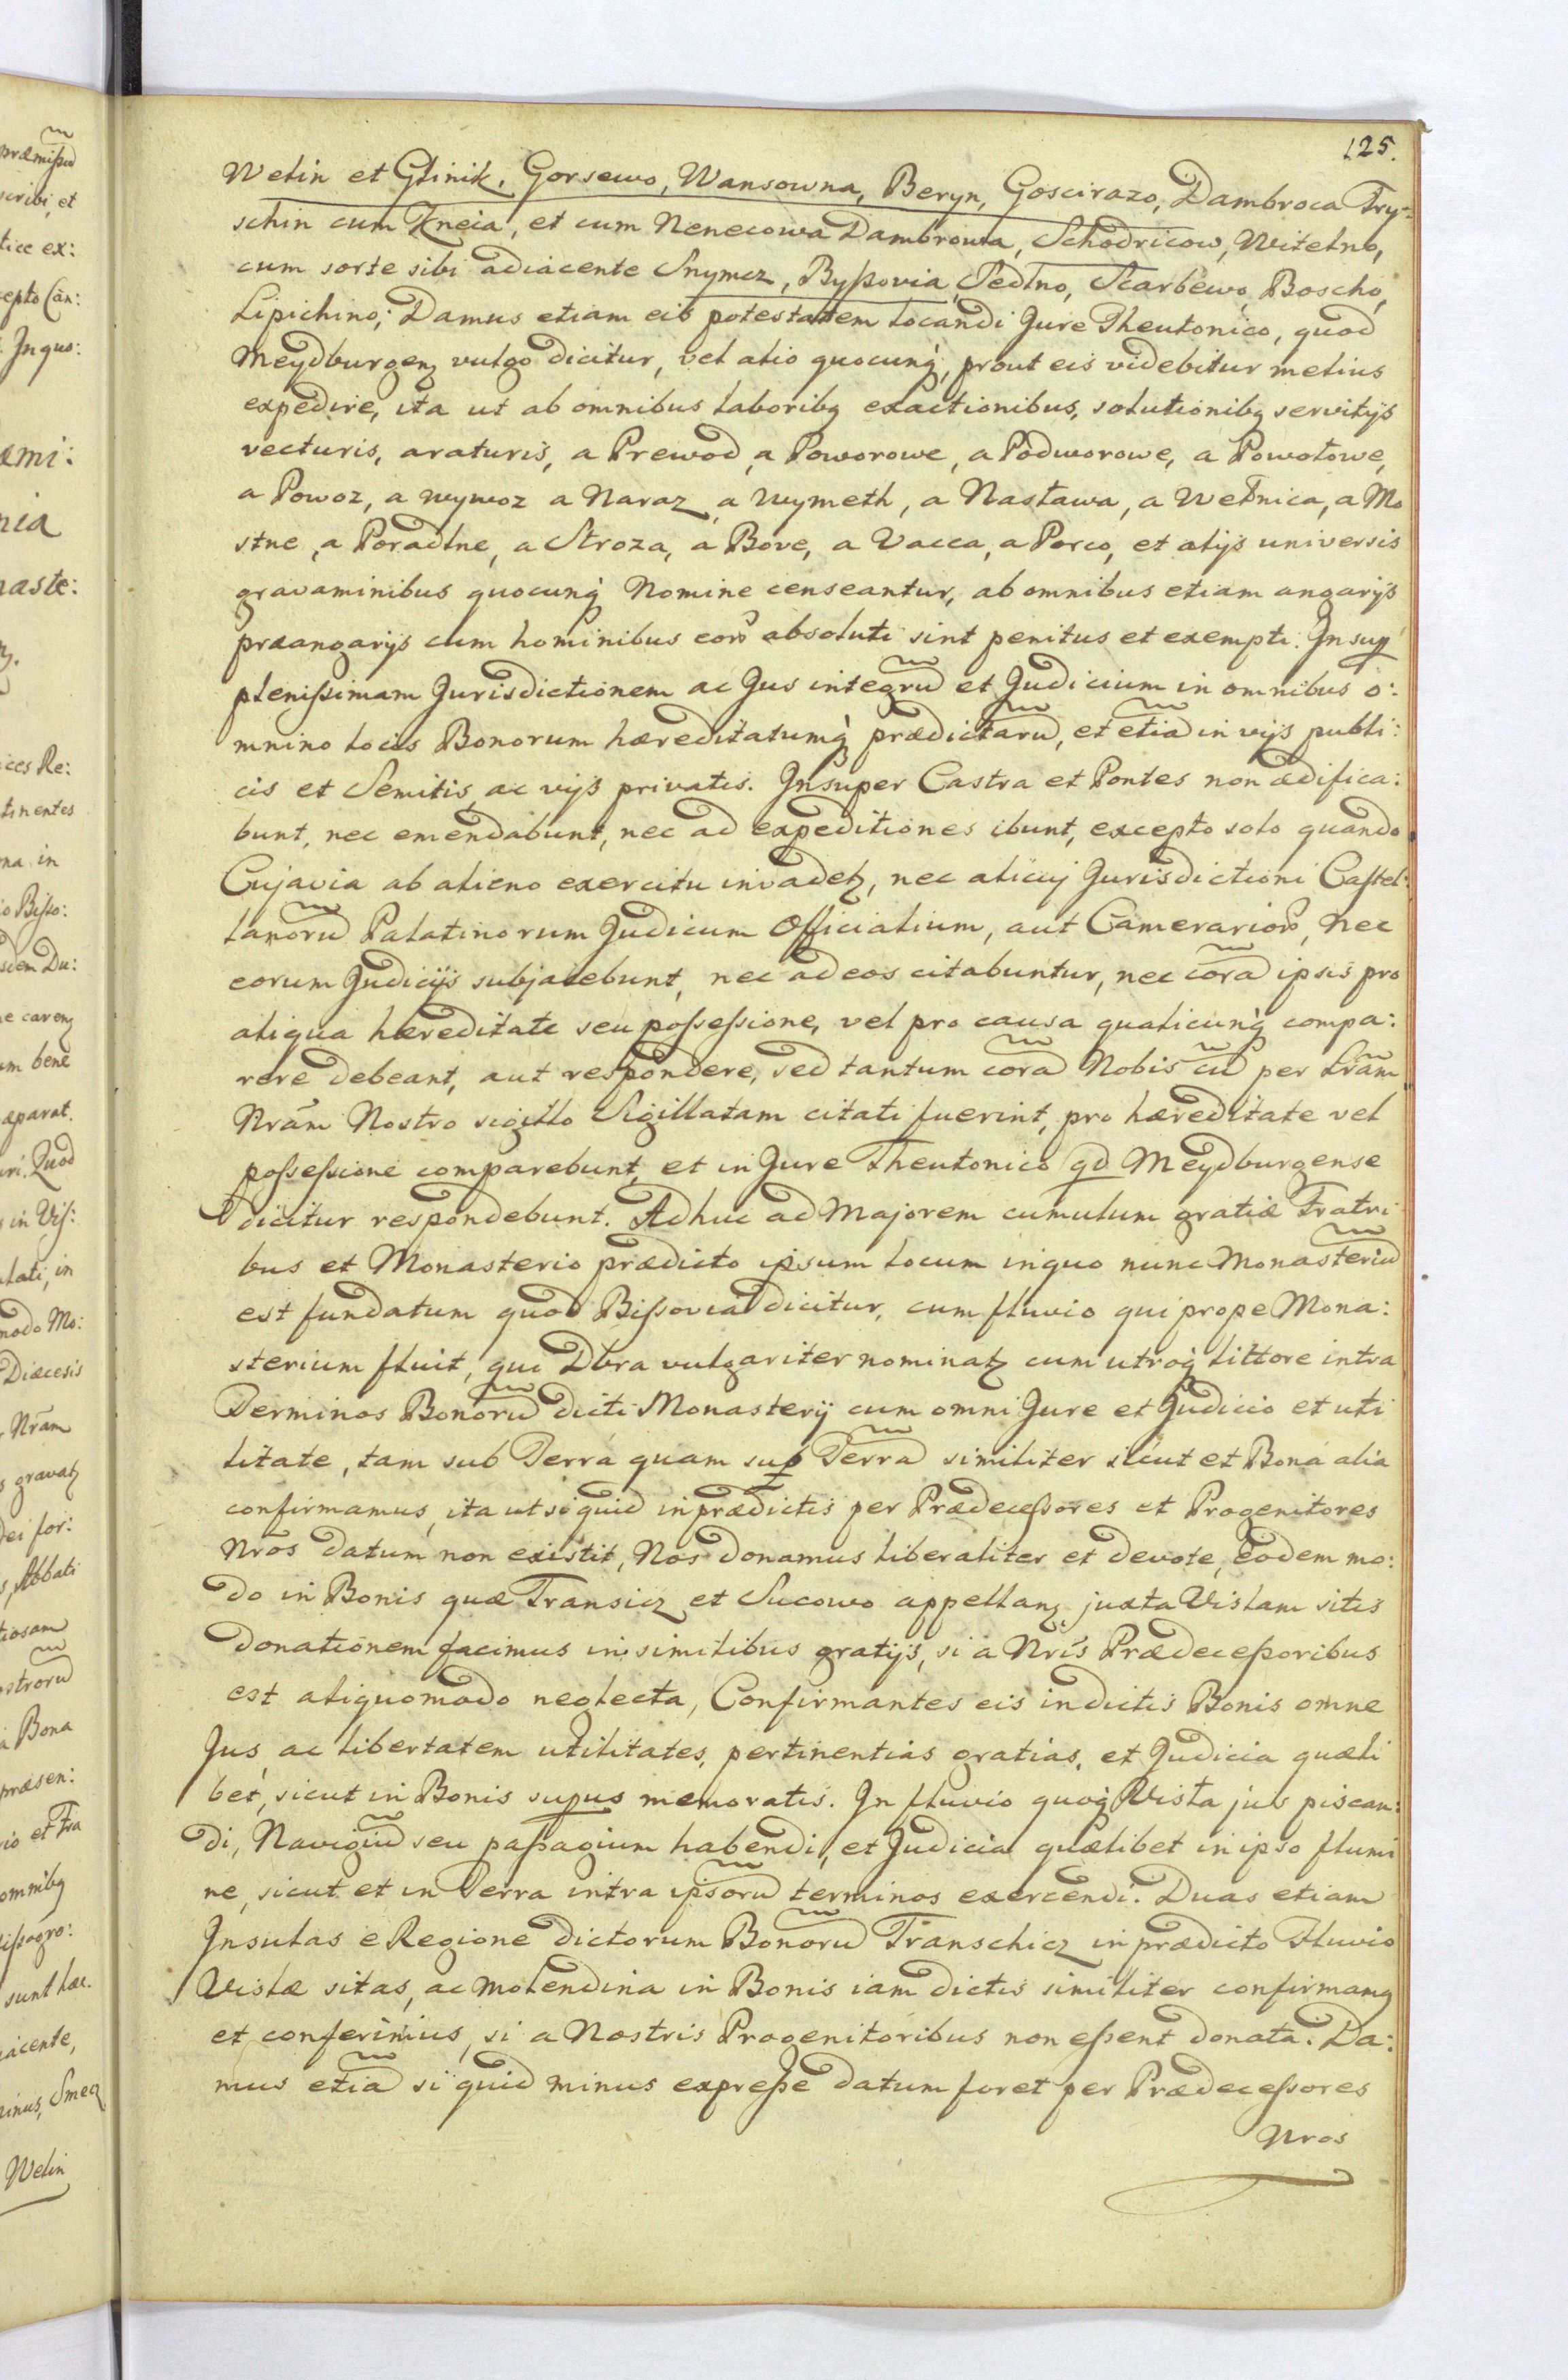 125.
Welin et Glinik, Gorsewo, Wansowna, Beryn, Goscirazo, Dambroca Try-
schin cum Kneia, et cum Nenecowa Dambrowa, Schodricow, Witelno,
cum sorte sibi adiacente Snymcz, Byßovia, Sedlno, Scarbewo, Boscho,
Lipichino; Damus etiam eis potestatem locandi Jure Theutonico, quod
Meydburgenz vulgo dicitur, vel alio quocunq́, prout eis videbitur melius
expedire, ita ut ab omnibus laboribz exactionibus, solutionibz servitijs
vecturis, araturis, a Prewod, a Poworowe, a Podworowe, a Powolowe,
a Powoz, a wywoz a Naraz, a Wymeth, a Nastawa, a Wetnica, a Mo
stne, a Poradlne, a Stroza, a Bove, a Vacca, a Porco, et alijs universis
gravaminibus quocunq́ Nomine censeantur, ab omnibus etiam angarijs
præangarijs cum hominibus eoꝝ absoluti sint penitus et exempti. Insuꝑ
plenißimam Jurisdictionem ac Jus integrũ et Judicium in omnibus o:
mnino locis Bonorum hæreditatumq́ prædictarũ, et etiã in vijs publi:
cis et Semitis, ac vijs privatis. Insuper Castra et Pontes non ædifica:
bunt, nec emendabunt, nec ad expeditiones ibunt, excepto solo quando
Cujavia ab alieno exercitu invadetz, nec alicuj Jurisdictioni Castel:
lanorũ Palatinorum Judicum Officialium, aut Camerarioꝝ, nec
eorum Judicijs subjacebunt, nec ad eos citabuntur, nec corã ipsis pro
aliqua hæreditate seu possessione, vel pro causa qualicunq́ compa:
rere debeant, aut respondere, sed tantum corã Nobis cũ per Lrãm
Nrãm Nostro sigillo Sigillatam citati fuerint, pro hæreditate vel
possessione comparebunt, et in Jure Theutonico qd Meydburgense
dicitur respondebunt. Adhuc ad Majorem cumulum gratiæ Fratri
bus et Monasterio prædicto ipsum locum in quo nunc Monasteriũ
est fundatum quod Bißovia dicitur, cum fluvio qui prope Mona:
sterium fluit, qui Dbra vulgariter nominatz cum utroq́ littore intra
Terminos Bonorũ dicti Monasterij cum omni Jure et Judicio et uti
litate, tam sub Terra quam suꝑ Terrã similiter sicut et Bona alia
confirmamus, ita ut si quid in prædictis per Prædecessores et Progenitores
Nros datum non existit, Nos donamus liberaliter et devote, eodem mo:
do in Bonis quæ Transicz et Sucowo appellanz juxta Vislam sitis
donationem facimus in similibus gratijs, si a Nris Prædeceßoribus
est aliquomodo neglecta, Confirmantes eis in dictis Bonis omne
Jus, ac libertatem utilitates, pertinentias gratias, et Judicia quæli
bet, sicut in Bonis supus memoratis. In fluvio quoq́ Visla jus piscan:
di, Navigiũ seu paßagium habendi, et Judicia quælibet in ipso flumi
ne, sicut et in Terra intra ipsorũ terminos exercendi. Duas etiam
Insulas e Regione dictorum Bonorũ Transchicz in prædicto Fluvio
Vislæ sitas, ac Molendina in Bonis iam dictis similiter confirmamz
et conferimus, si a Nostris Progenitoribus non eßent donata. Da:
mus etiã si quid minus expreße datum foret per Prædecessores
Nros